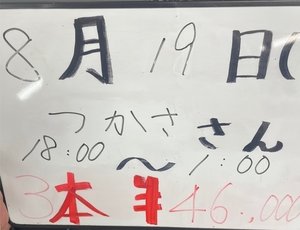 8月19日(
つかささん
18:00～1:00
3本 ¥46.000